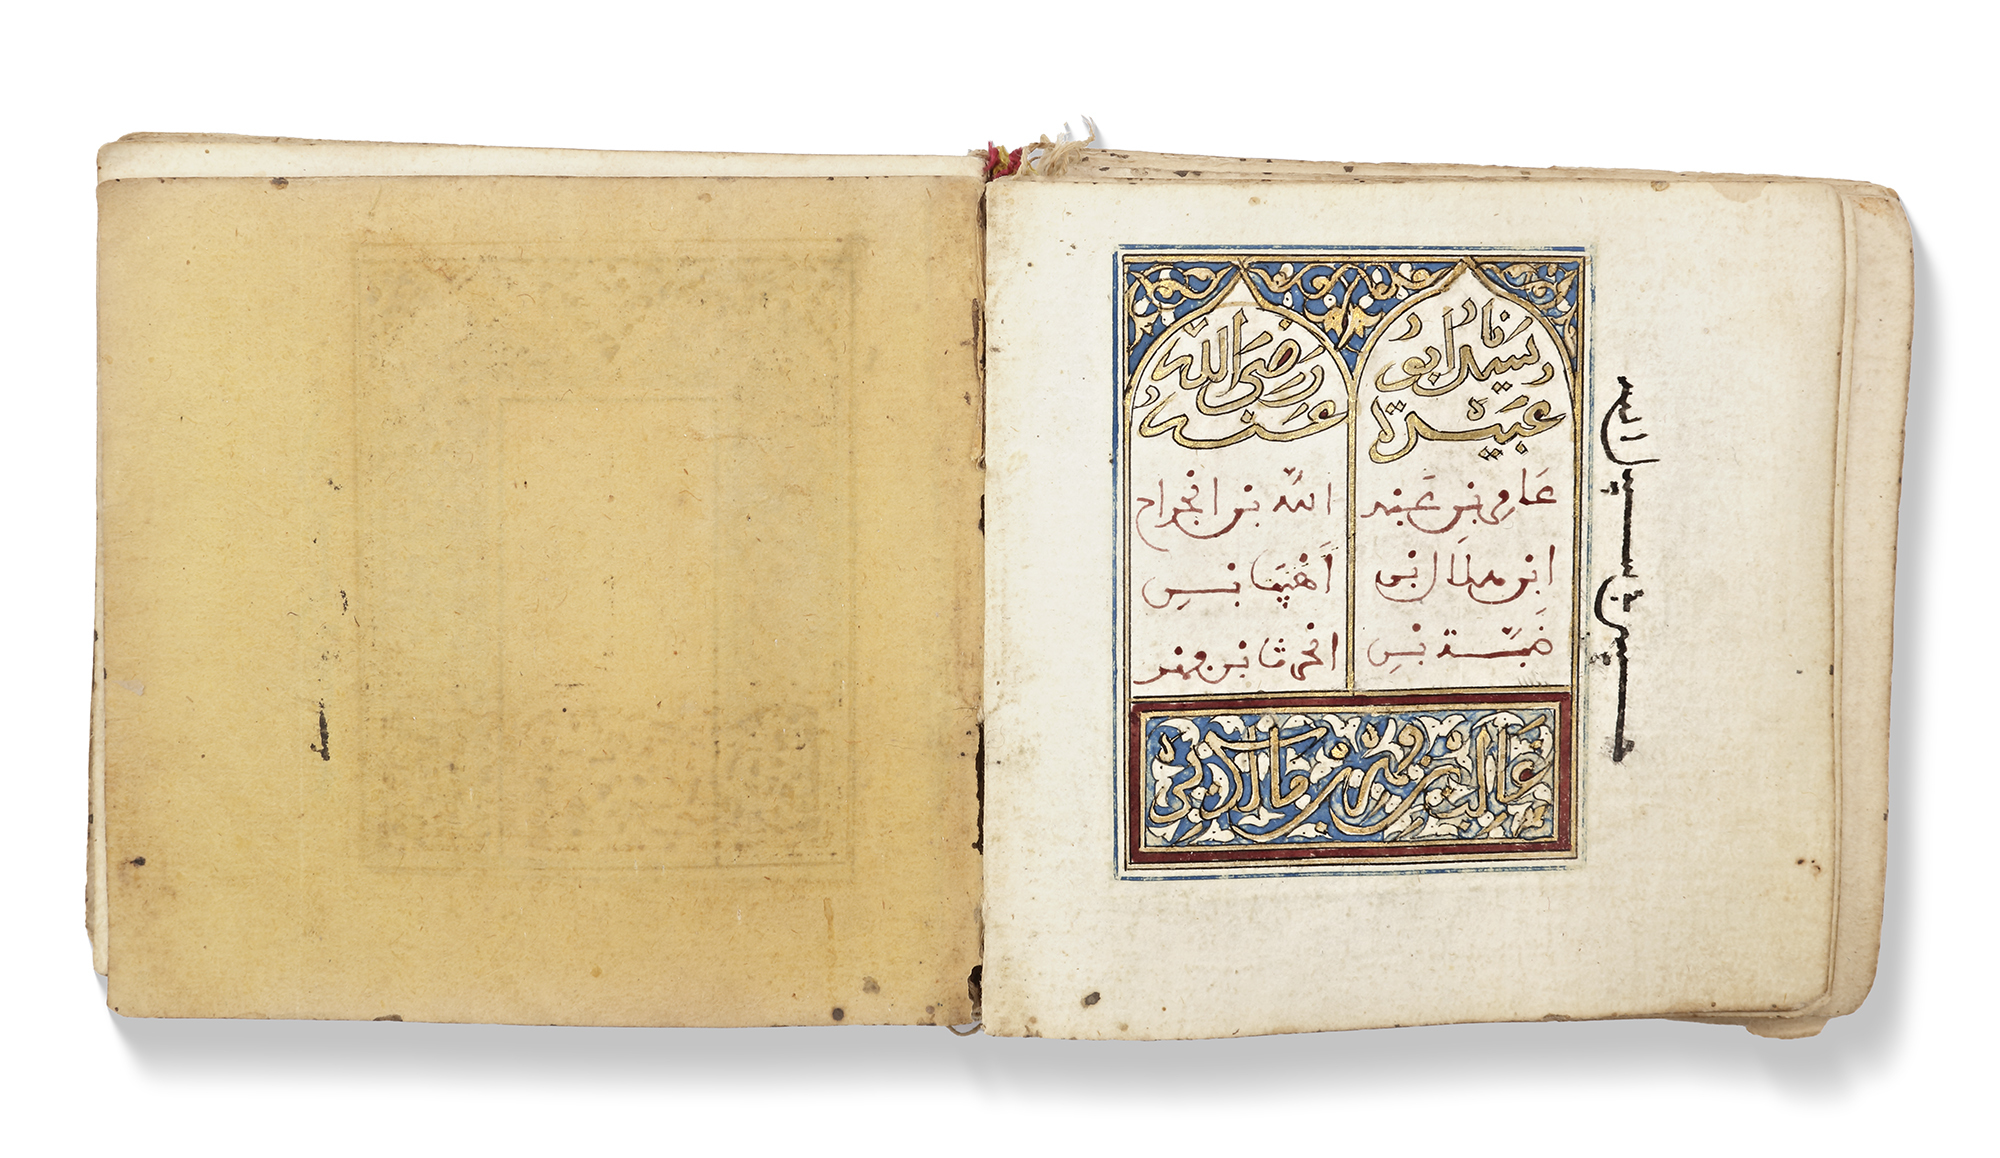 وسيدنا ابو
عبيدة
رضي الله
عنه
عامر بن عبد الله بن الجراح
ابن هلال بن اهيب بن
ضبة بن الحرث بن فهر
غالب بن فهر بن مالك ابن
حبس في سبيل الله